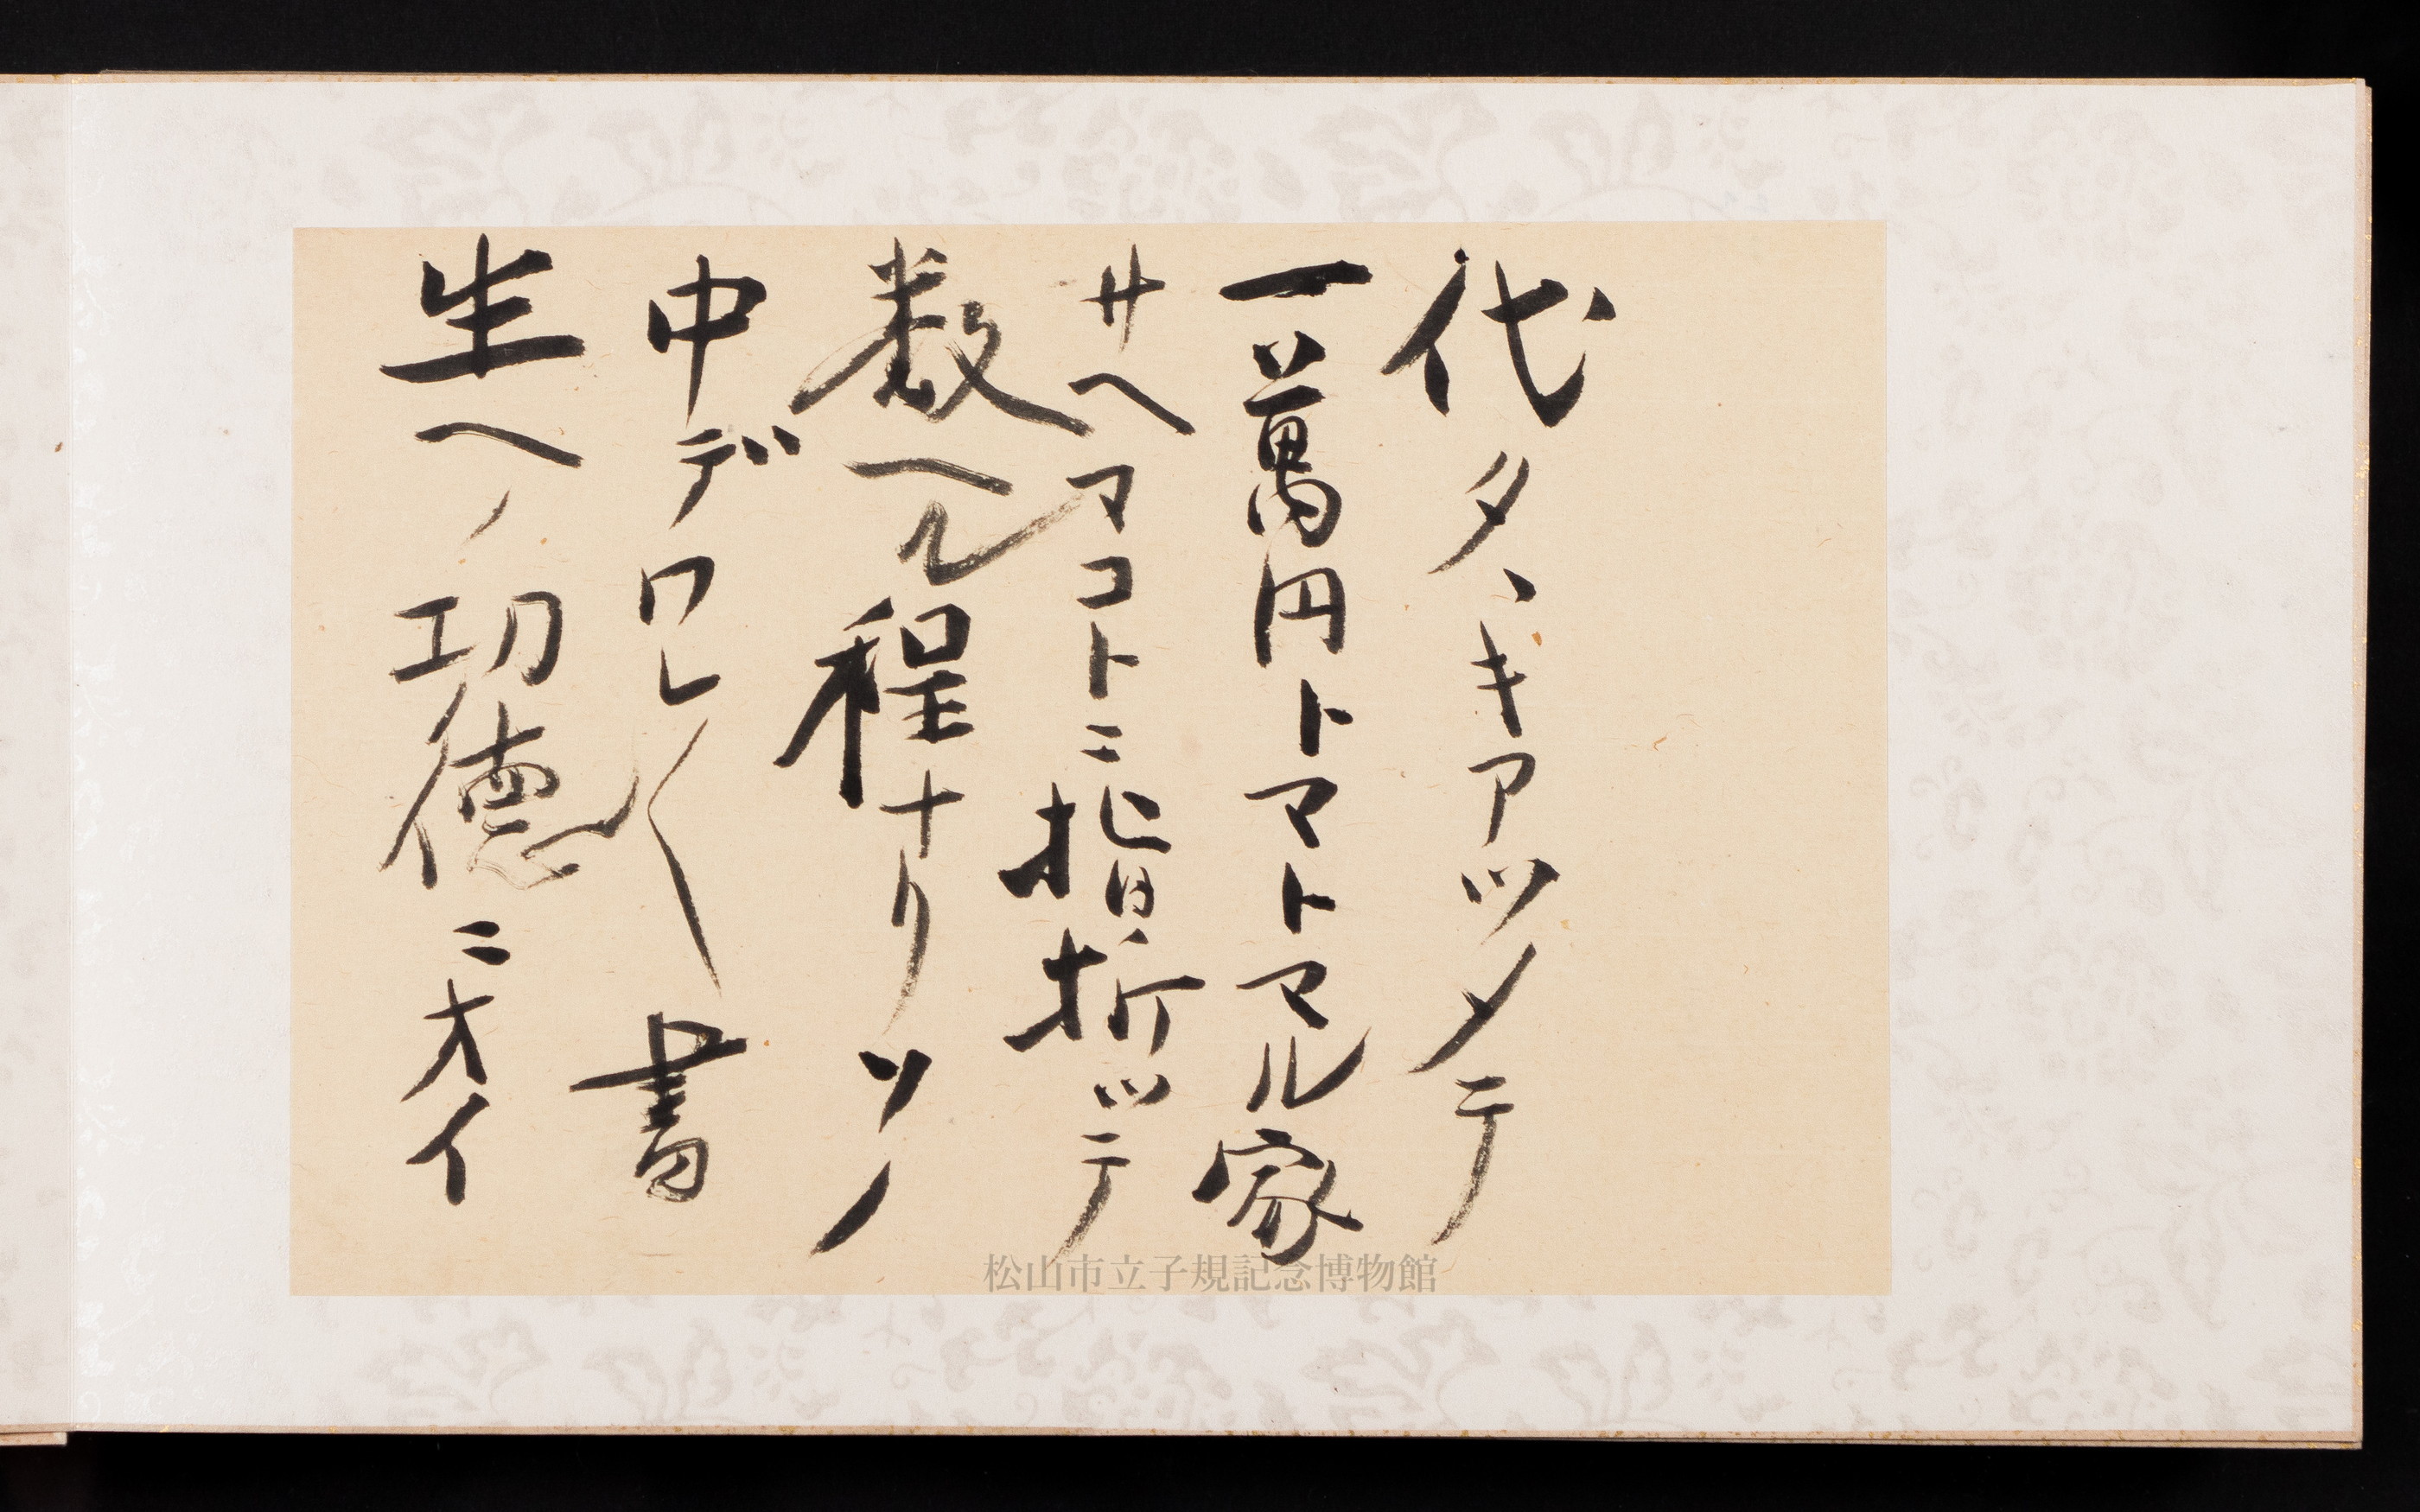 代タヽキアツメテ
一萬円トマトマル家
サヘマコトニ指折ッテ
数ヘル程ナリソノ
中デワレ〱書
生ヘノ功徳ニオイ
松山市立子規記念博物館